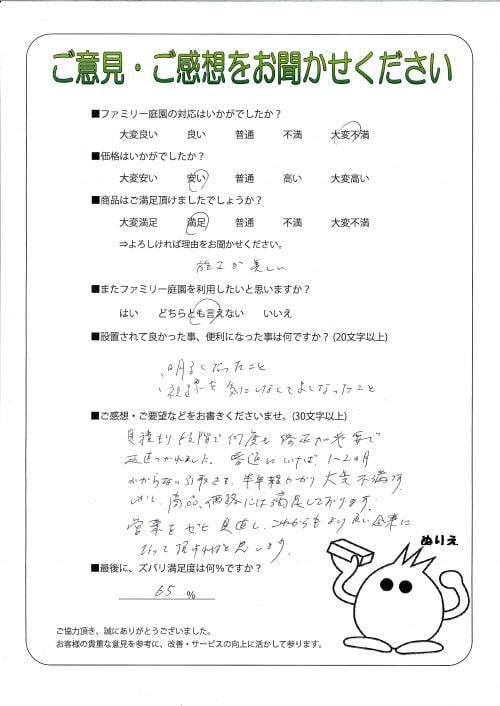 ご意見・ご感想をお聞かせください
■ファミリー庭園の対応はいかがでしたか？
大変良い 良い 普通 不満 大変不満
■価格はいかがでしたか？
大変安い 安い 普通 高い 大変高い
■商品はご満足頂けましたでしょうか？
大変満足 満足 普通 不満 大変不満
⇒よろしければ理由をお聞かせください。
施工が美しい
■またファミリー庭園を利用したいと思いますか？
はい どちらとも言えない いいえ
■設置されて良かった事、便利になった事は何ですか？(20文字以上)
明るくなったこと
視線を気にしなくてよくなったこと
■ご感想・ご要望などをお書きくださいませ。(30文字以上)
見積もり段階で何度も修正が必要で
疲れました。普通にいけば、1～2ヵ月
かからない 半年程かかり大変不満です
しかし、商品、価格には満足しております。
営業をぜひ見直し、これからもより良い企業に
なって頂ければと思います。
ぬりえ
■最後に、ズバリ満足度は何％ですか？
65 %
ご協力頂き、誠にありがとうございました。
お客様の貴重な意見を参考に、改善・サービスの向上に活かして参ります。